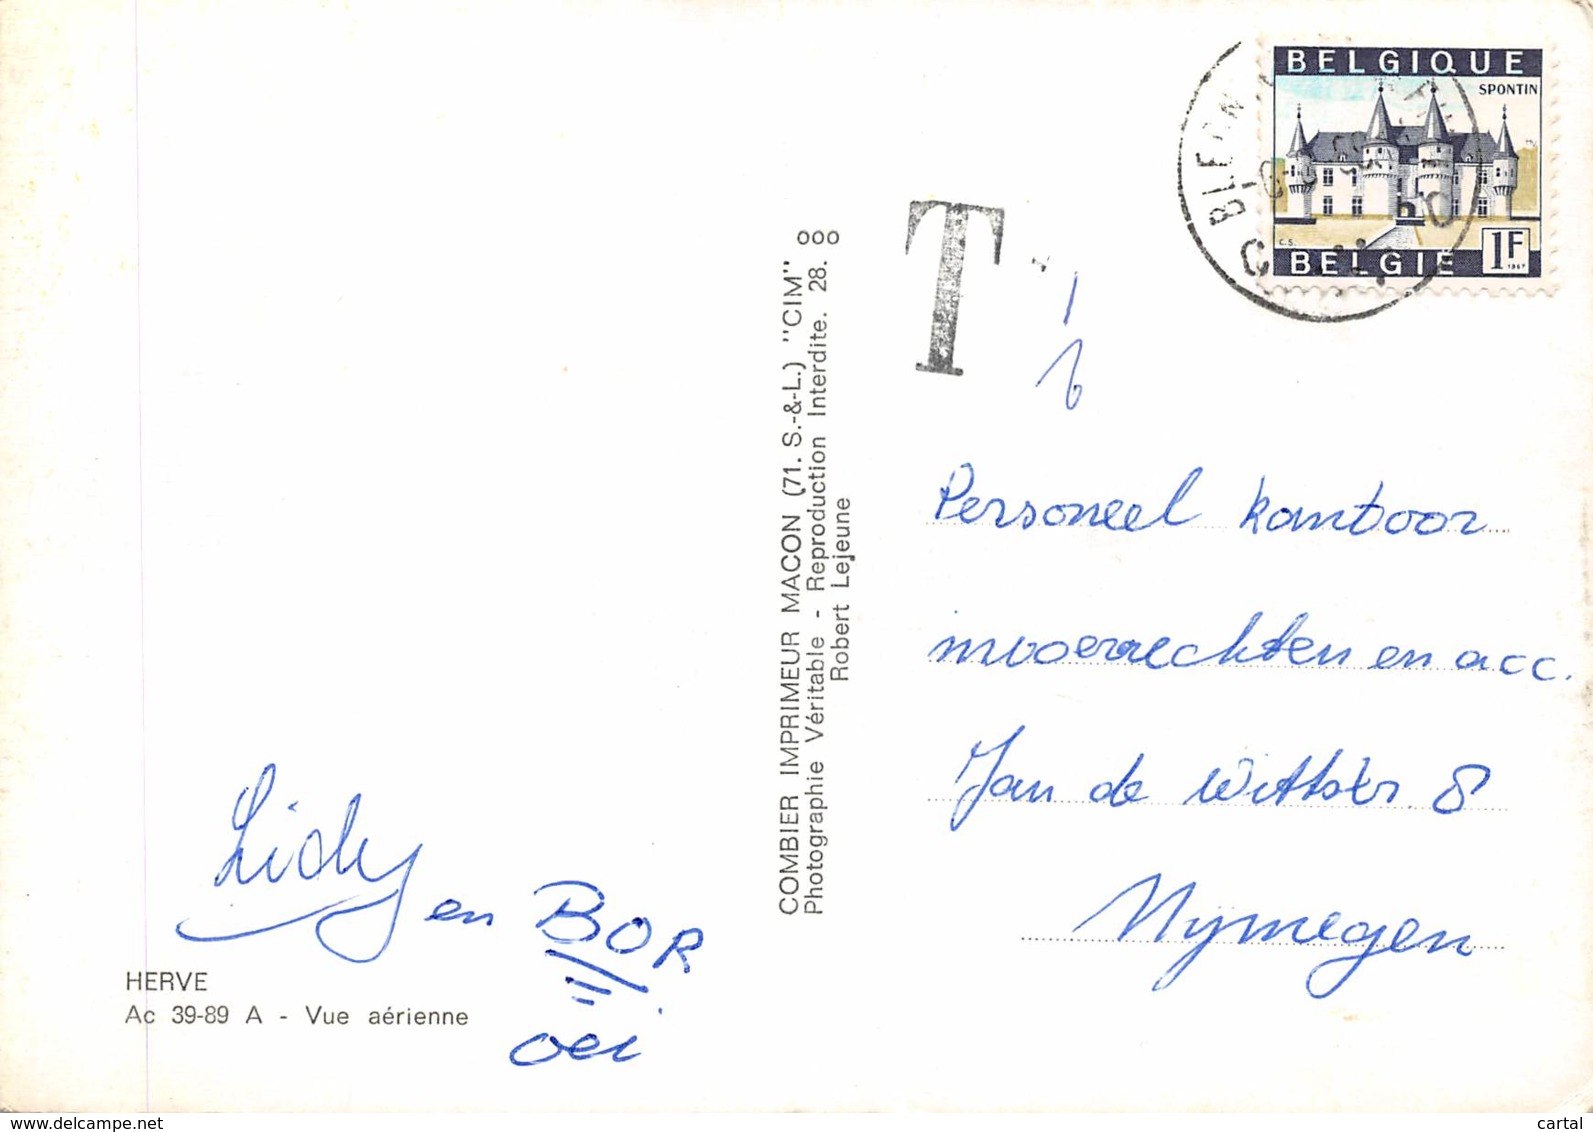 BELGIQUE
SPONTIN
C.S.
BELGIË 1F
1967
T
1
6
COMBIER IMPRIMEUR MACON (71. S.-&-L.) "CIM" ooo
Photographie Véritable - Reproduction Interdite. 28.
Robert Lejeune
Personeel kantoor
invoerrechten en acc.
Jan de Wittstr. 8
Nijmegen
Lidy en BOR
oei
HERVE
Ac 39-89 A - Vue aérienne
www.delcampe.net
cartal